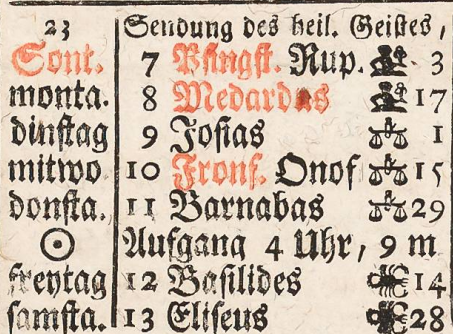 23 Sendung des heil. Geistes,
Sont. 7 Pfingst. Rup. 3
monta. 8 Medardus 17
dinstag 9 Josias 1
mitwo 10 Fronf. Onof 15
donsta. 11 Barnabas 29
☉ Aufgang 4 Uhr, 9 m
freytag 12 Basilides 14
samsta. 13 Eliseus 28